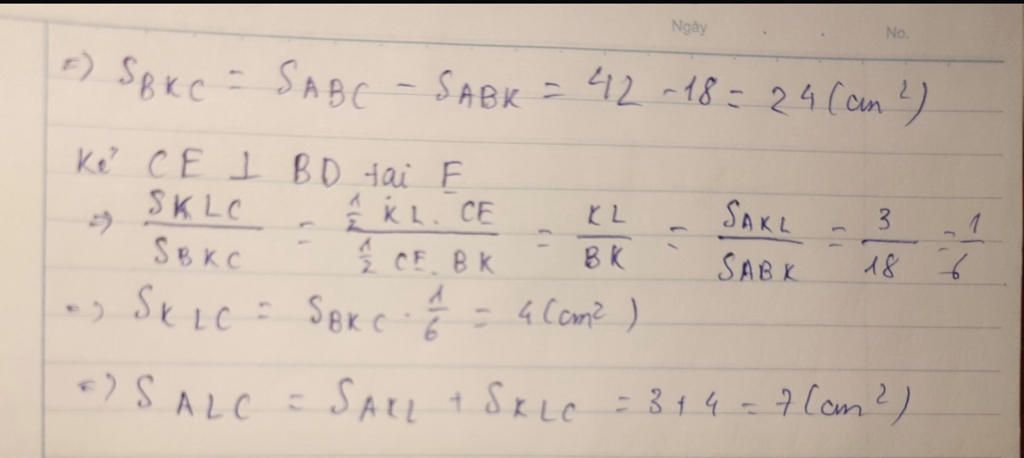 Ngày No.
=> SBKC = SABC - SABK = 42 - 18 = 24 (cm²)
Kẻ CE ⊥ BD tai E
=> SKLC / SBKC = (1/2 KL. CE) / (1/2 CE. BK) = KL / BK = SAKL / SABK = 3/18 = 1/6
=> SKLC = SBKC . 1/6 = 4 (cm²)
=> SALC = SAKL + SKLC = 3 + 4 = 7 (cm²)